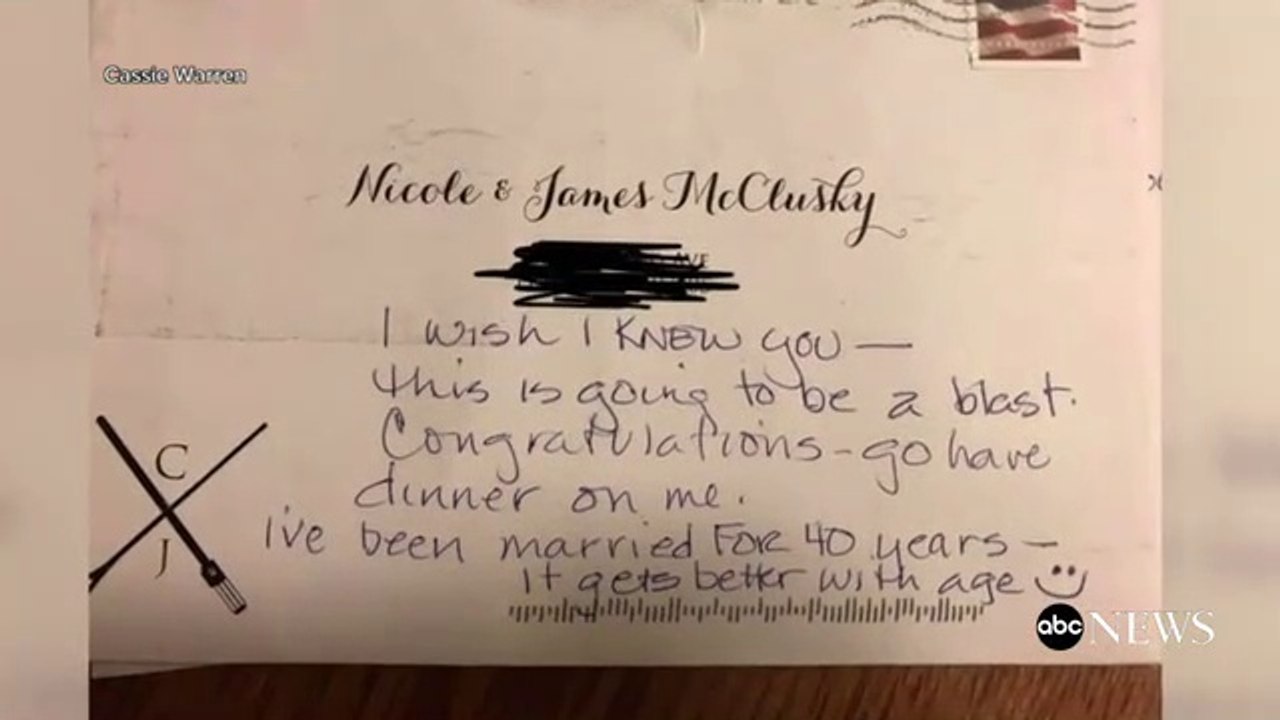 Cassie Warren
Nicole & James McClusky
AVE
I wish I KNEW you —
this is going to be a blast.
Congratulations - go have
dinner on me.
C
J
I've been married FOR 40 years —
it gets better with age
abc NEWS